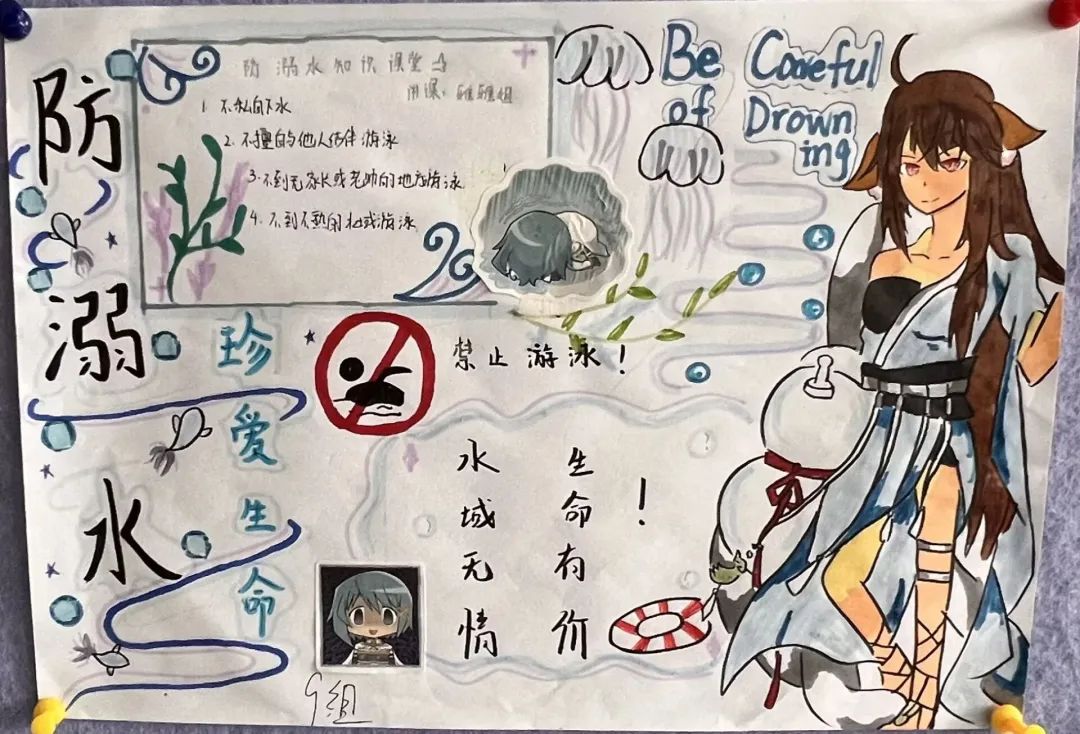 防溺水
防溺水知识课堂
1 不私自下水
2. 不擅自与他人结伴游泳
3. 不到无家长或老师的地方游泳
4. 不到不熟的水域游泳
Be Careful
of Drown
ing
珍爱生命
禁止游泳！
水域无情
生命有价！
9组